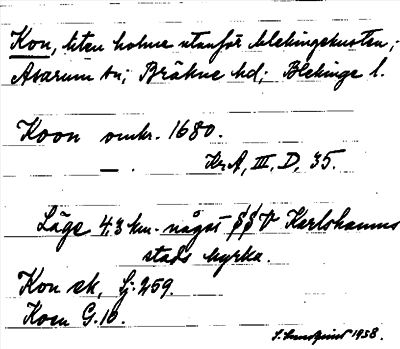 Kon, liten holme utanför blekingekusten;
Asarum sn; Bräkne hd; Blekinge l.
Koon omkr. 1680.
KrA, III, D, 35.
Läge 4,3 km. något SSV Karlshamns
stads kyrka.
Kon ek, Ij: 259.
Koen G. 10.
S. Sundquist 1938.